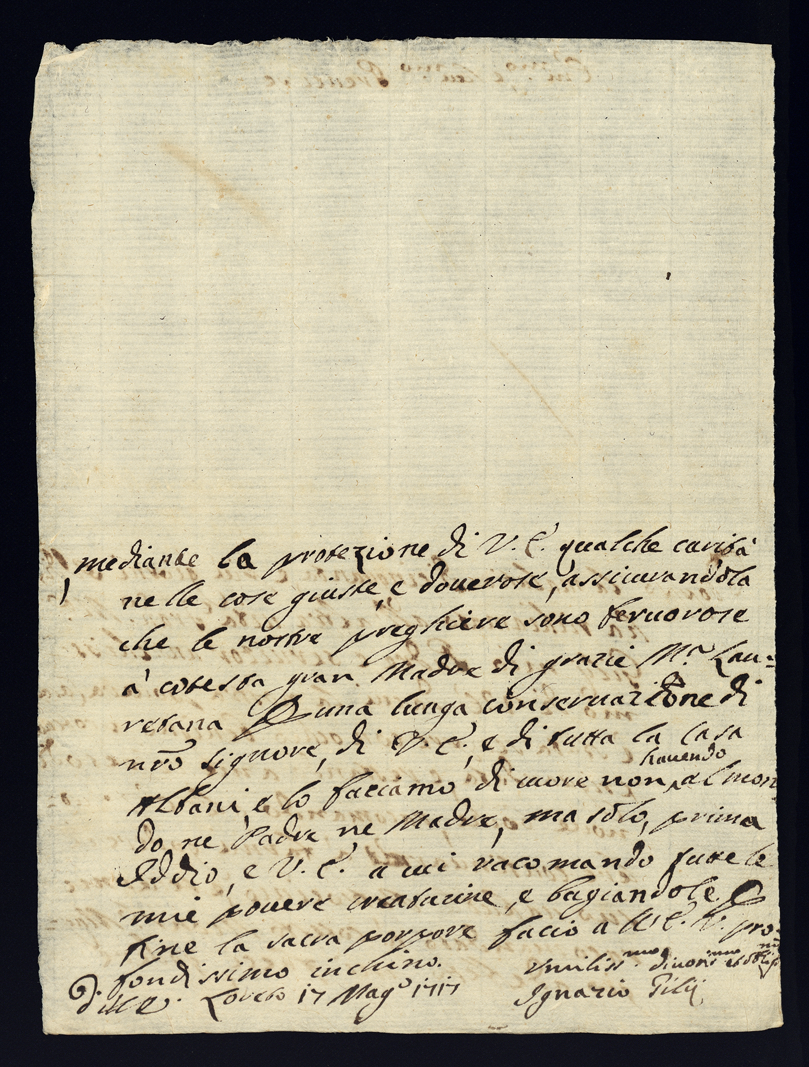 mediante la protezione di V. E. qualche carità
nelle cose giuste, e doverose, assicurandola
che le nostre preghiere sono fervorose
à cotesta gran Madre di grazie Mª Lau=
retana una lunga conservazione di
nrõ signore, di V. E. e di tutta la Casa
havendo
Albani, e lo facciamo di cuore non al mon
do ne Padre ne Madre, ma solo, prima
Iddio, e V. E. a cui racomando tutte le
mie povere creaturine, e bagiandole
fine la sacra porpore faccio a pro=
fondissimo inchino.
Loreto 17 Magº 1717
Umilissmo divotmo
Ignazio